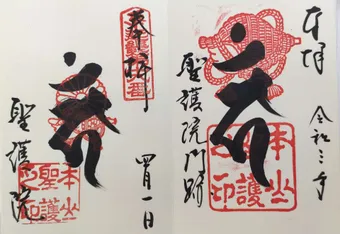 奉拝
令和三年
聖護院門跡
本山
聖護
之印
奉拝
四月一日
聖護院
本山
聖護
之印